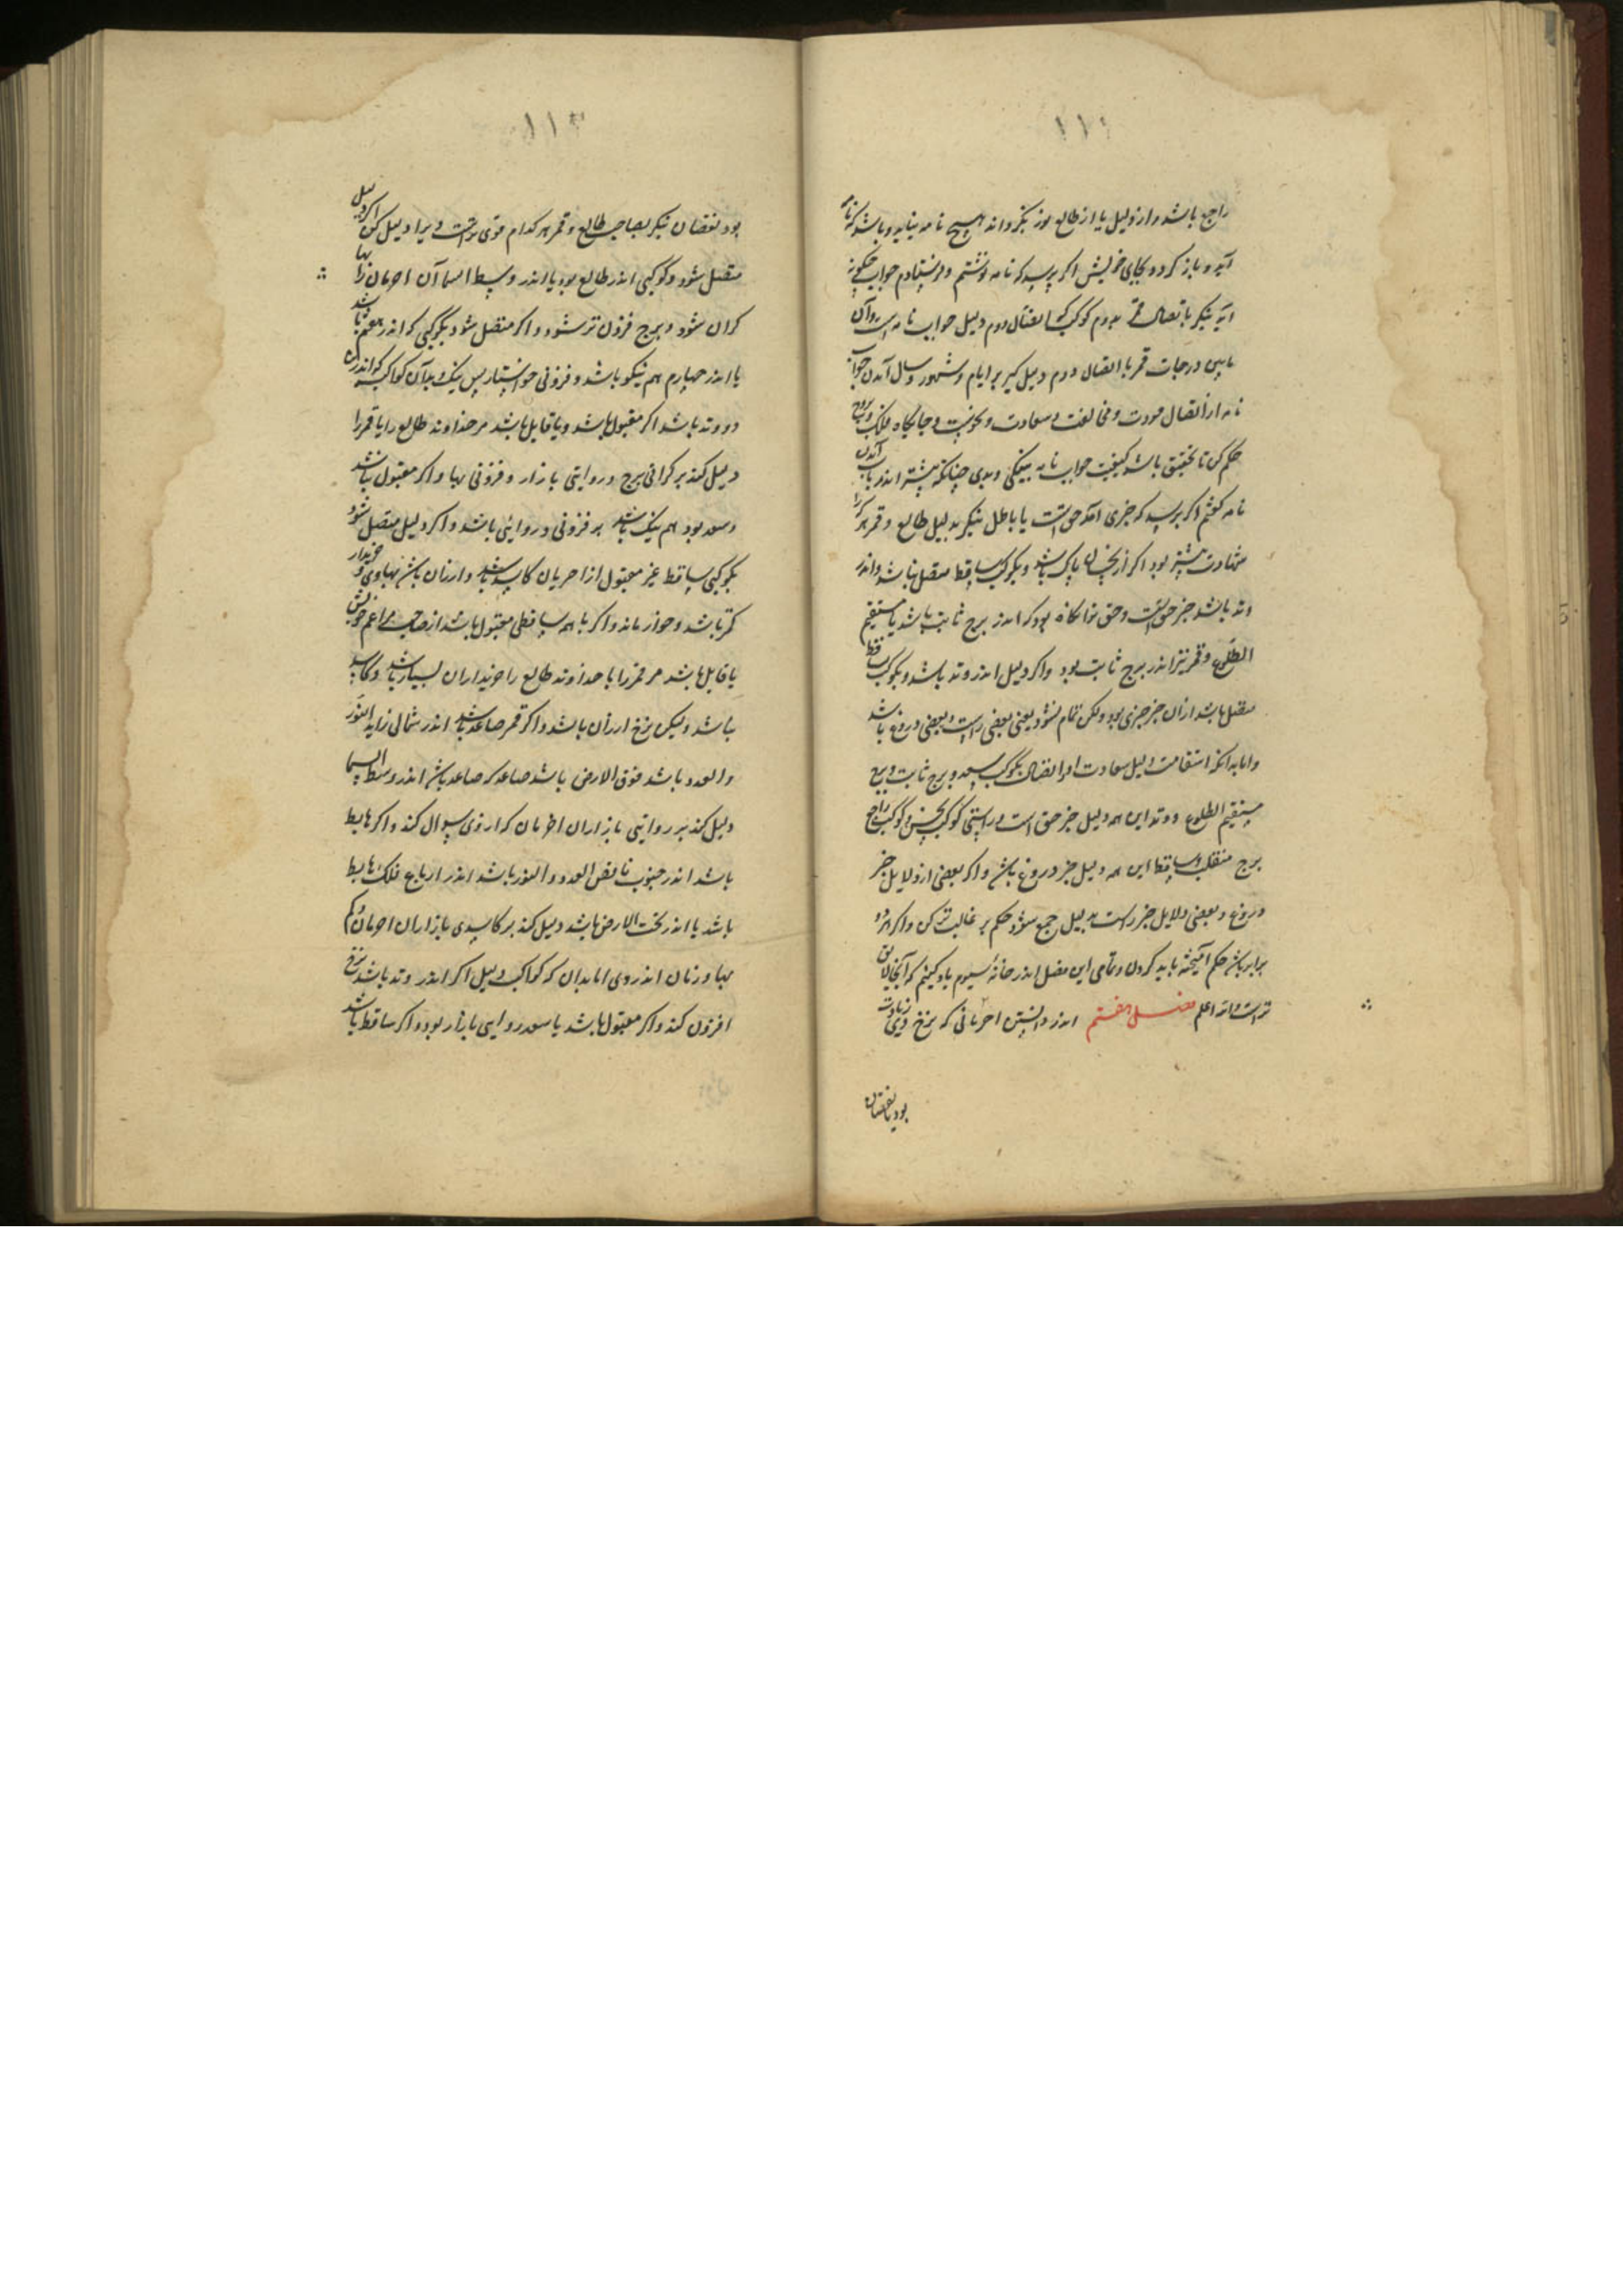 ۱۱۲
راجع باشد و از دلیل یا از طالع نور بگرداند هیچ نامه نیاید و باشد که نامه
آید و باز گردد بجای خویش اکر پرسد که نامه نوشتم و فرستادم جواب چگونه
آید بنگر باتصال قمر بدوم کوکب اتصال دوم دلیل جواب نامه است و از آن
مابین درجات قمر با اتصال دوم دلیل گیر بر ایام و شهور و سال آمدن جواب
نامه از اتصال مودت و مخالفت و سعادت و نحوست و جایگاه فلک و بروج
حکم کن تا تحقیق باشد کیفیت جواب نامه به نیکی و بدی چنانکه پیشتر اندر باب آمدن
نامه گفتم اکر پرسد که خبری آمد حق است یا باطل بنگر بدلیل طالع و قمر هر کرا
شهادت بیشتر بود اکر از نحسان پاک باشد و بکوکب ساقط متصل نباشد و اندر
وتد باشد خبر حق است و حق توانکاه بود که اندر برج ثابت باشد یا مستقیم
الطلوع و قمر نیز اندر برج ثابت بود واکر دلیل اندر وتد باشد و بکوکب ساقط
متصل باشد از آن خبر چیزی بود ولکن تمام نشود یعنی بعضی راست و بعضی دروغ باشد
و اما بدانکه استقامت دلیل سعادت او و اتصال بکوکب سعد و برج ثابت و ربع
مستقیم الطلوع و وتد این همه دلیل خبر حق است و راستی کوکب نحس و کوکب راجع
برج منقلب و ساقط این همه دلیل خبر دروغ باشد واکر بعضی از دلایل خبر
دروغ و بعضی دلایل خبر راست بدلیل جمع شود حکم بر غالب تر کن واکر هر دو
برابر باشد حکم آمیخته باید کردن و تمامی این فصل اندر خانه سیوم یاد کنیم که آنجا لایق
تر است والله اعلم فصل هفتم اندر دانستن اخریانی که نرخ وی زیادت
بود یا نقصان
۱۱۳
بود نقصان بنگر بصاحب طالع و قمر هر کدام قوی تر است ویرا دلیل کن اکر دلیل
متصل شود و کوکبی اندر طالع بود یا اندر وسط السما آن اخریان را بها
کران شود و برج فزون تر شود و اکر متصل شود بکوکبی که اندر هفتم باشد
یا اندر چهارم هم نیکو باشد و فزونی خواستار پس نیک و بد آن کواکب که اندر این
دو وتد باشد اکر مقبول باشد و یا قابل باشد مر خداوند طالع را یا قمر را
دلیل کند بر کرانی برج و روایی بازار و فزونی بها واکر مقبول نباشد
و سعد بود هم نیک باشد بر فزونی و روایی باشد و اکر دلیل متصل شود
بکوکبی ساقط غیر مقبول از اخریان کاسد باشد و ارزان باشد بهاوی و خریدار
کمتر باشد و خوار ماند و اکر با همه ساقطی مقبول باشد از صاحب مزاعم خویش
یا قابل باشد مر قمر را یا خداوند طالع را خریداران بسیار باشد و کاسد
نباشد ولیکن نرخ ارزان باشد و اکر قمر صاعد باشد اندر شمالی زاید النور
و العدد باشد فوق الارض باشد صاعد کر صاعد باشد اندر وسط السما
دلیل کند بر روایی بازاران اخریان که از وی سوال کند و اکر هابط
باشد اندر جنوب ناقص العدد و النور باشد اندر ارباع فلک هابط
باشد یا اندر تحت الارض باشد دلیل کند بر کاسدی بازاران اخریان و کم
بها و زیان اندر وی اما بدان که کواکب دلیل اکر اندر وتد باشد نرخ
افزون کند و اکر مقبول باشد یا سعد روایی بازار بود و اکر ساقط باشد